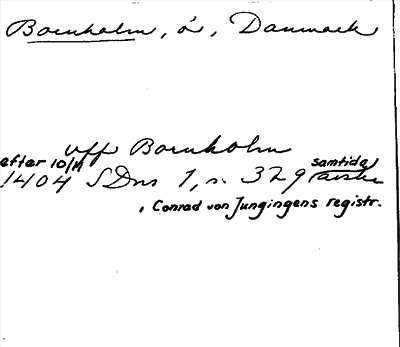 Bornholm, ö, Danmark
uff Bornholm
efter 10/11 samtida
1404 SDns 1, s. 329 avskr
i Conrad von Jungingens registr.